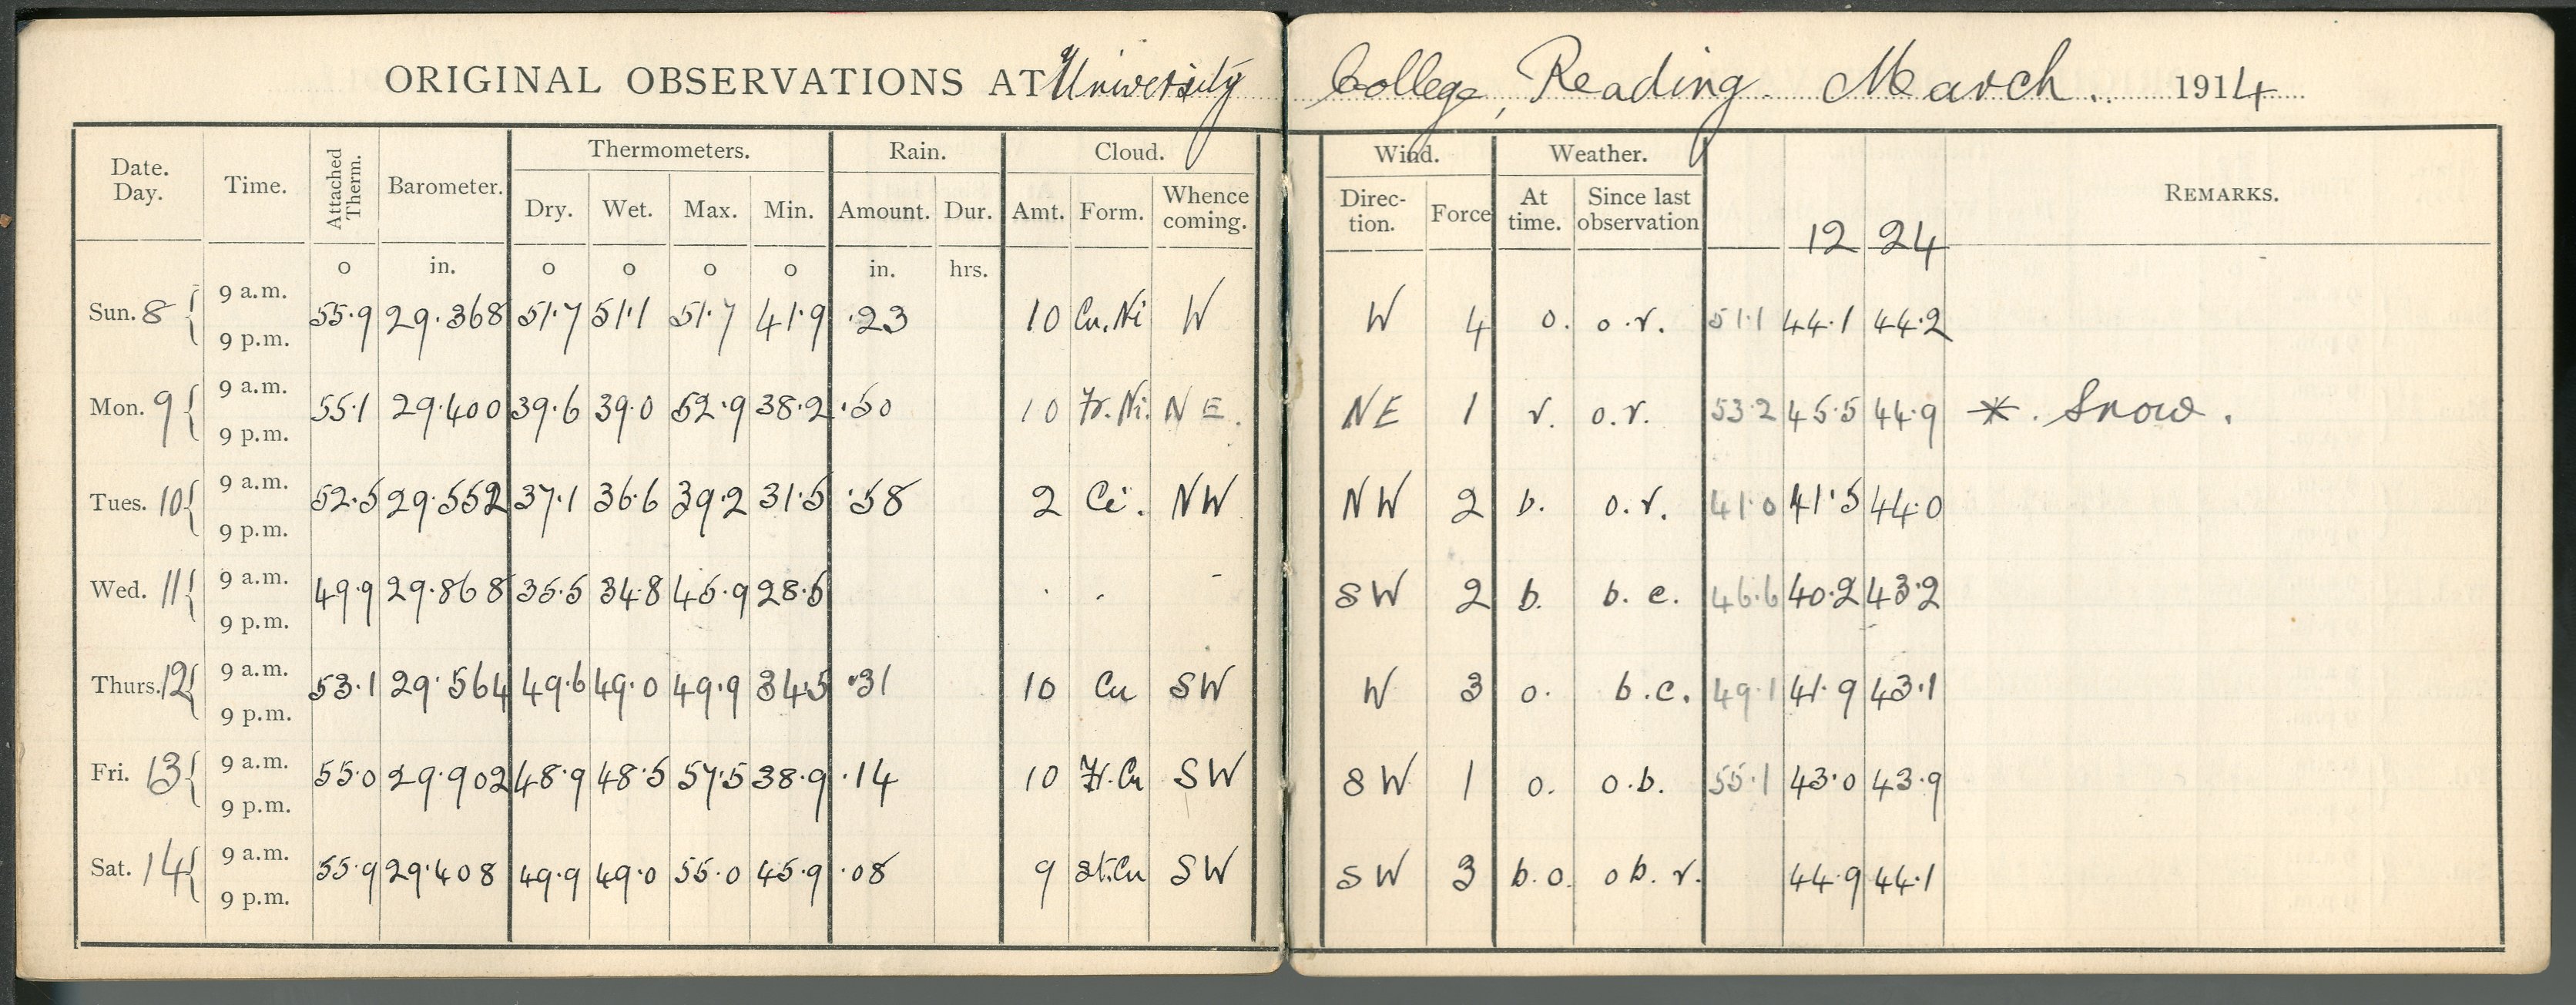 ORIGINAL OBSERVATIONS AT University College, Reading. March. 1914
Date. Day. Time. Attached Therm. Barometer. Thermometers. Rain. Cloud. Wind. Weather. REMARKS.
Dry. Wet. Max. Min. Amount. Dur. Amt. Form. Whence coming. Direc- tion. Force At time. Since last observation 12 24
o in. o o o o in. hrs.
9 a.m.
Sun. 8 55.9 29.368 51.7 51.1 51.7 41.9 .23 10 Cu.Ni W W 4 o. o.r. 51.1 44.1 44.2
9 p.m.
9 a.m.
Mon. 9 55.1 29.400 39.6 39.0 52.9 38.2 .50 10 Fr.Ni. N E. NE 1 r. o.r. 53.2 45.5 44.9 *. Snow.
9 p.m.
9 a.m.
Tues. 10 52.5 29.552 37.1 36.6 39.2 31.5 .58 2 Ci. NW NW 2 b. o.r. 41.0 41.5 44.0
9 p.m.
9 a.m.
Wed. 11 49.9 29.868 35.5 34.8 45.9 28.5 . . - SW 2 b. b.c. 46.6 40.2 43.2
9 p.m.
9 a.m.
Thurs. 12 53.1 29.564 49.6 49.0 49.9 34.5 .31 10 Cu SW W 3 o. b.c. 49.1 41.9 43.1
9 p.m.
9 a.m.
Fri. 13 55.0 29.902 48.9 48.5 57.5 38.9 .14 10 Fr.Cu SW SW 1 o. o.b. 55.1 43.0 43.9
9 p.m.
9 a.m.
Sat. 14 55.9 29.408 49.9 49.0 55.0 45.9 .08 9 St.Cu SW SW 3 b.o. o b.r. 44.9 44.1
9 p.m.